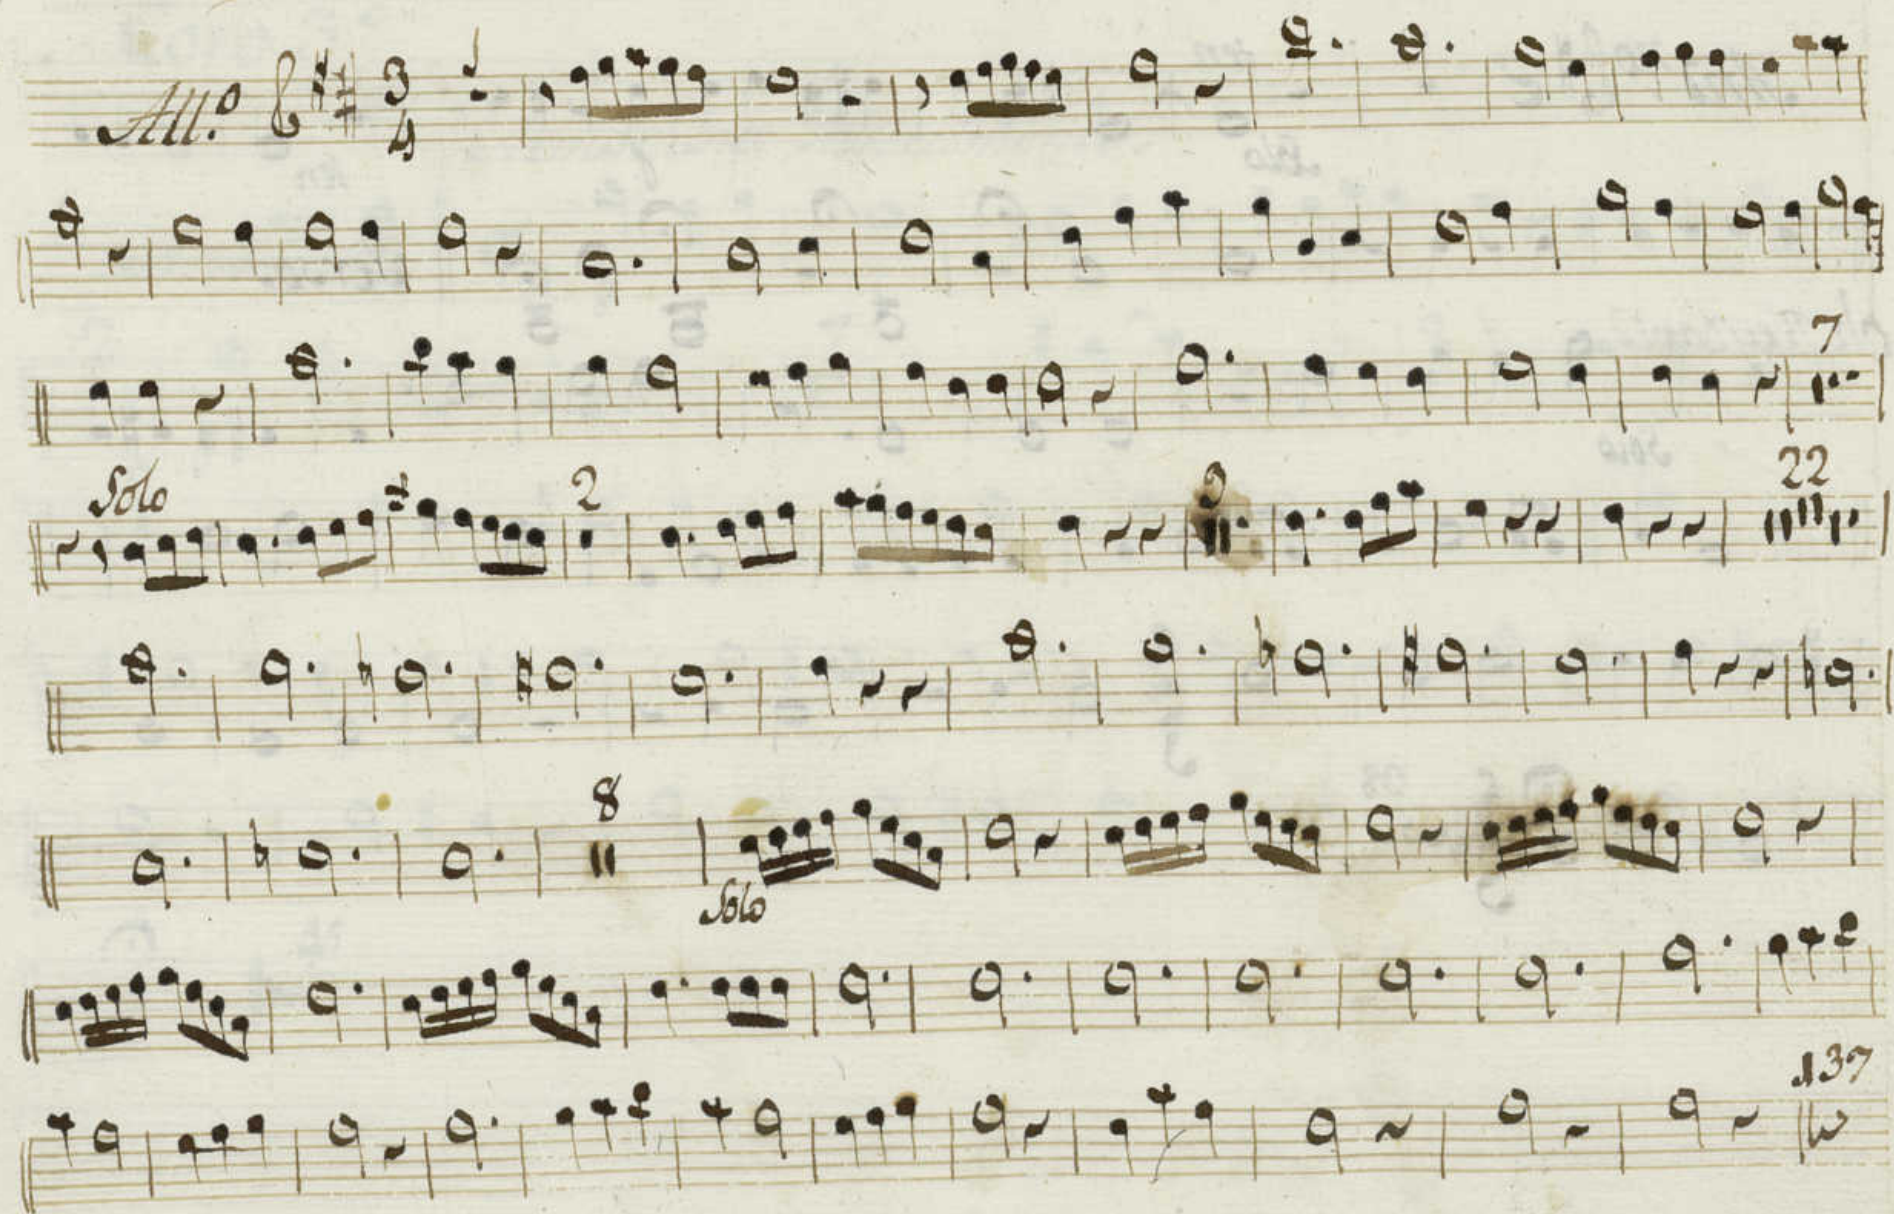 All.o 3
4
7
Solo 2 22
8
Solo
137